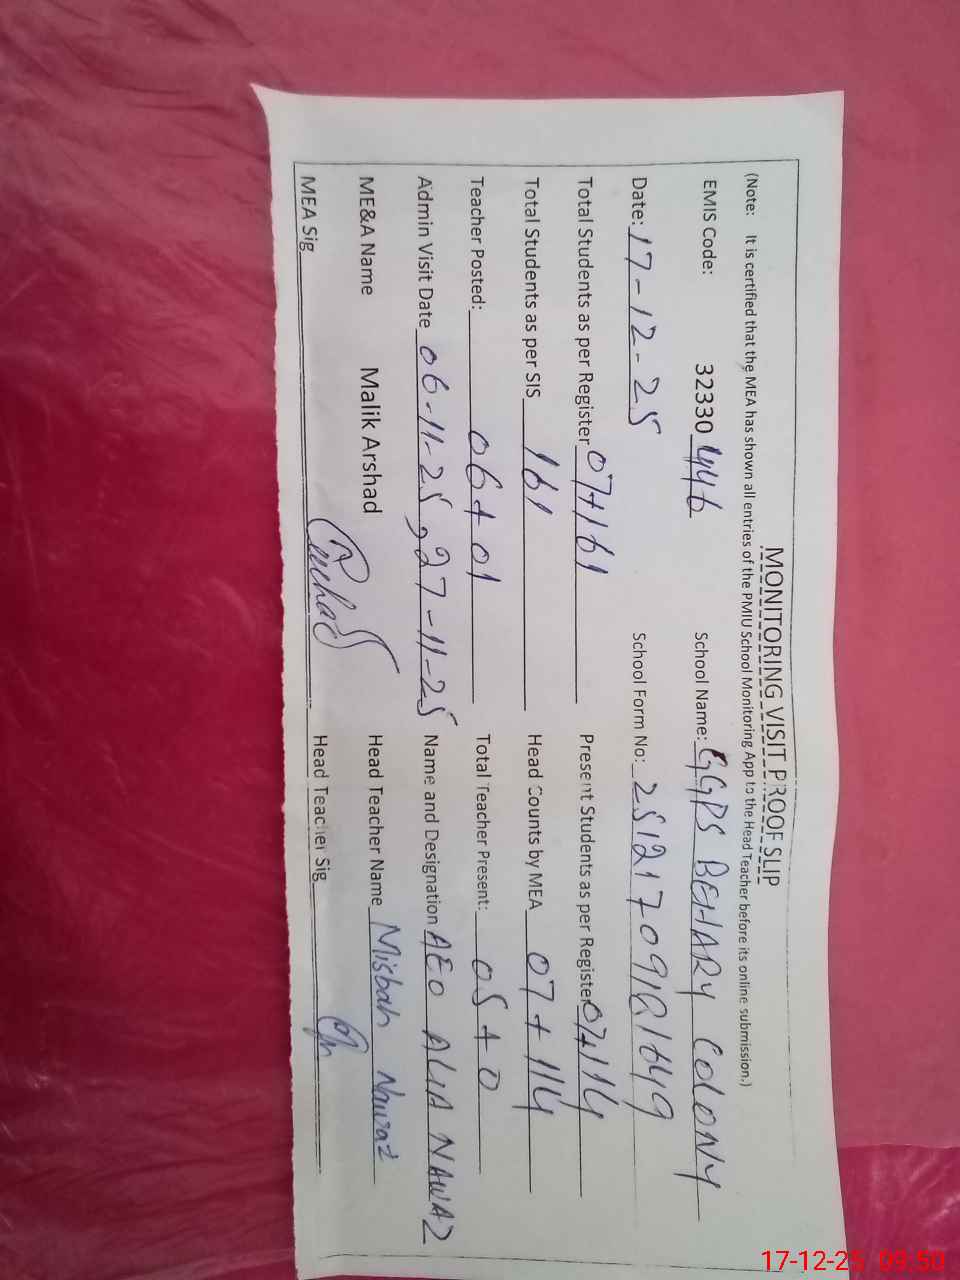 MONITORING VISIT PROOF SLIP
(Note: It is certified that the MEA has shown all entries of the PMIU School Monitoring App to the Head Teacher before its online submission.)
EMIS Code: 32330446 School Name: GGPS BEHARY COLONY
Date: 17-12-25 School Form No: 25121709121649
Total Students as per Register 07+161 Present Students as per Register 07+114
Total Students as per SIS 161 Head Counts by MEA 07+114
Teacher Posted: 06+01 Total Teacher Present: 05+0
Admin Visit Date 06-11-25, 27-11-25 Name and Designation AEO ALIA NAWAZ
ME&A Name Malik Arshad Head Teacher Name Misbah Nawaz
MEA Sig Head Teacher Sig
17-12-25 09:50